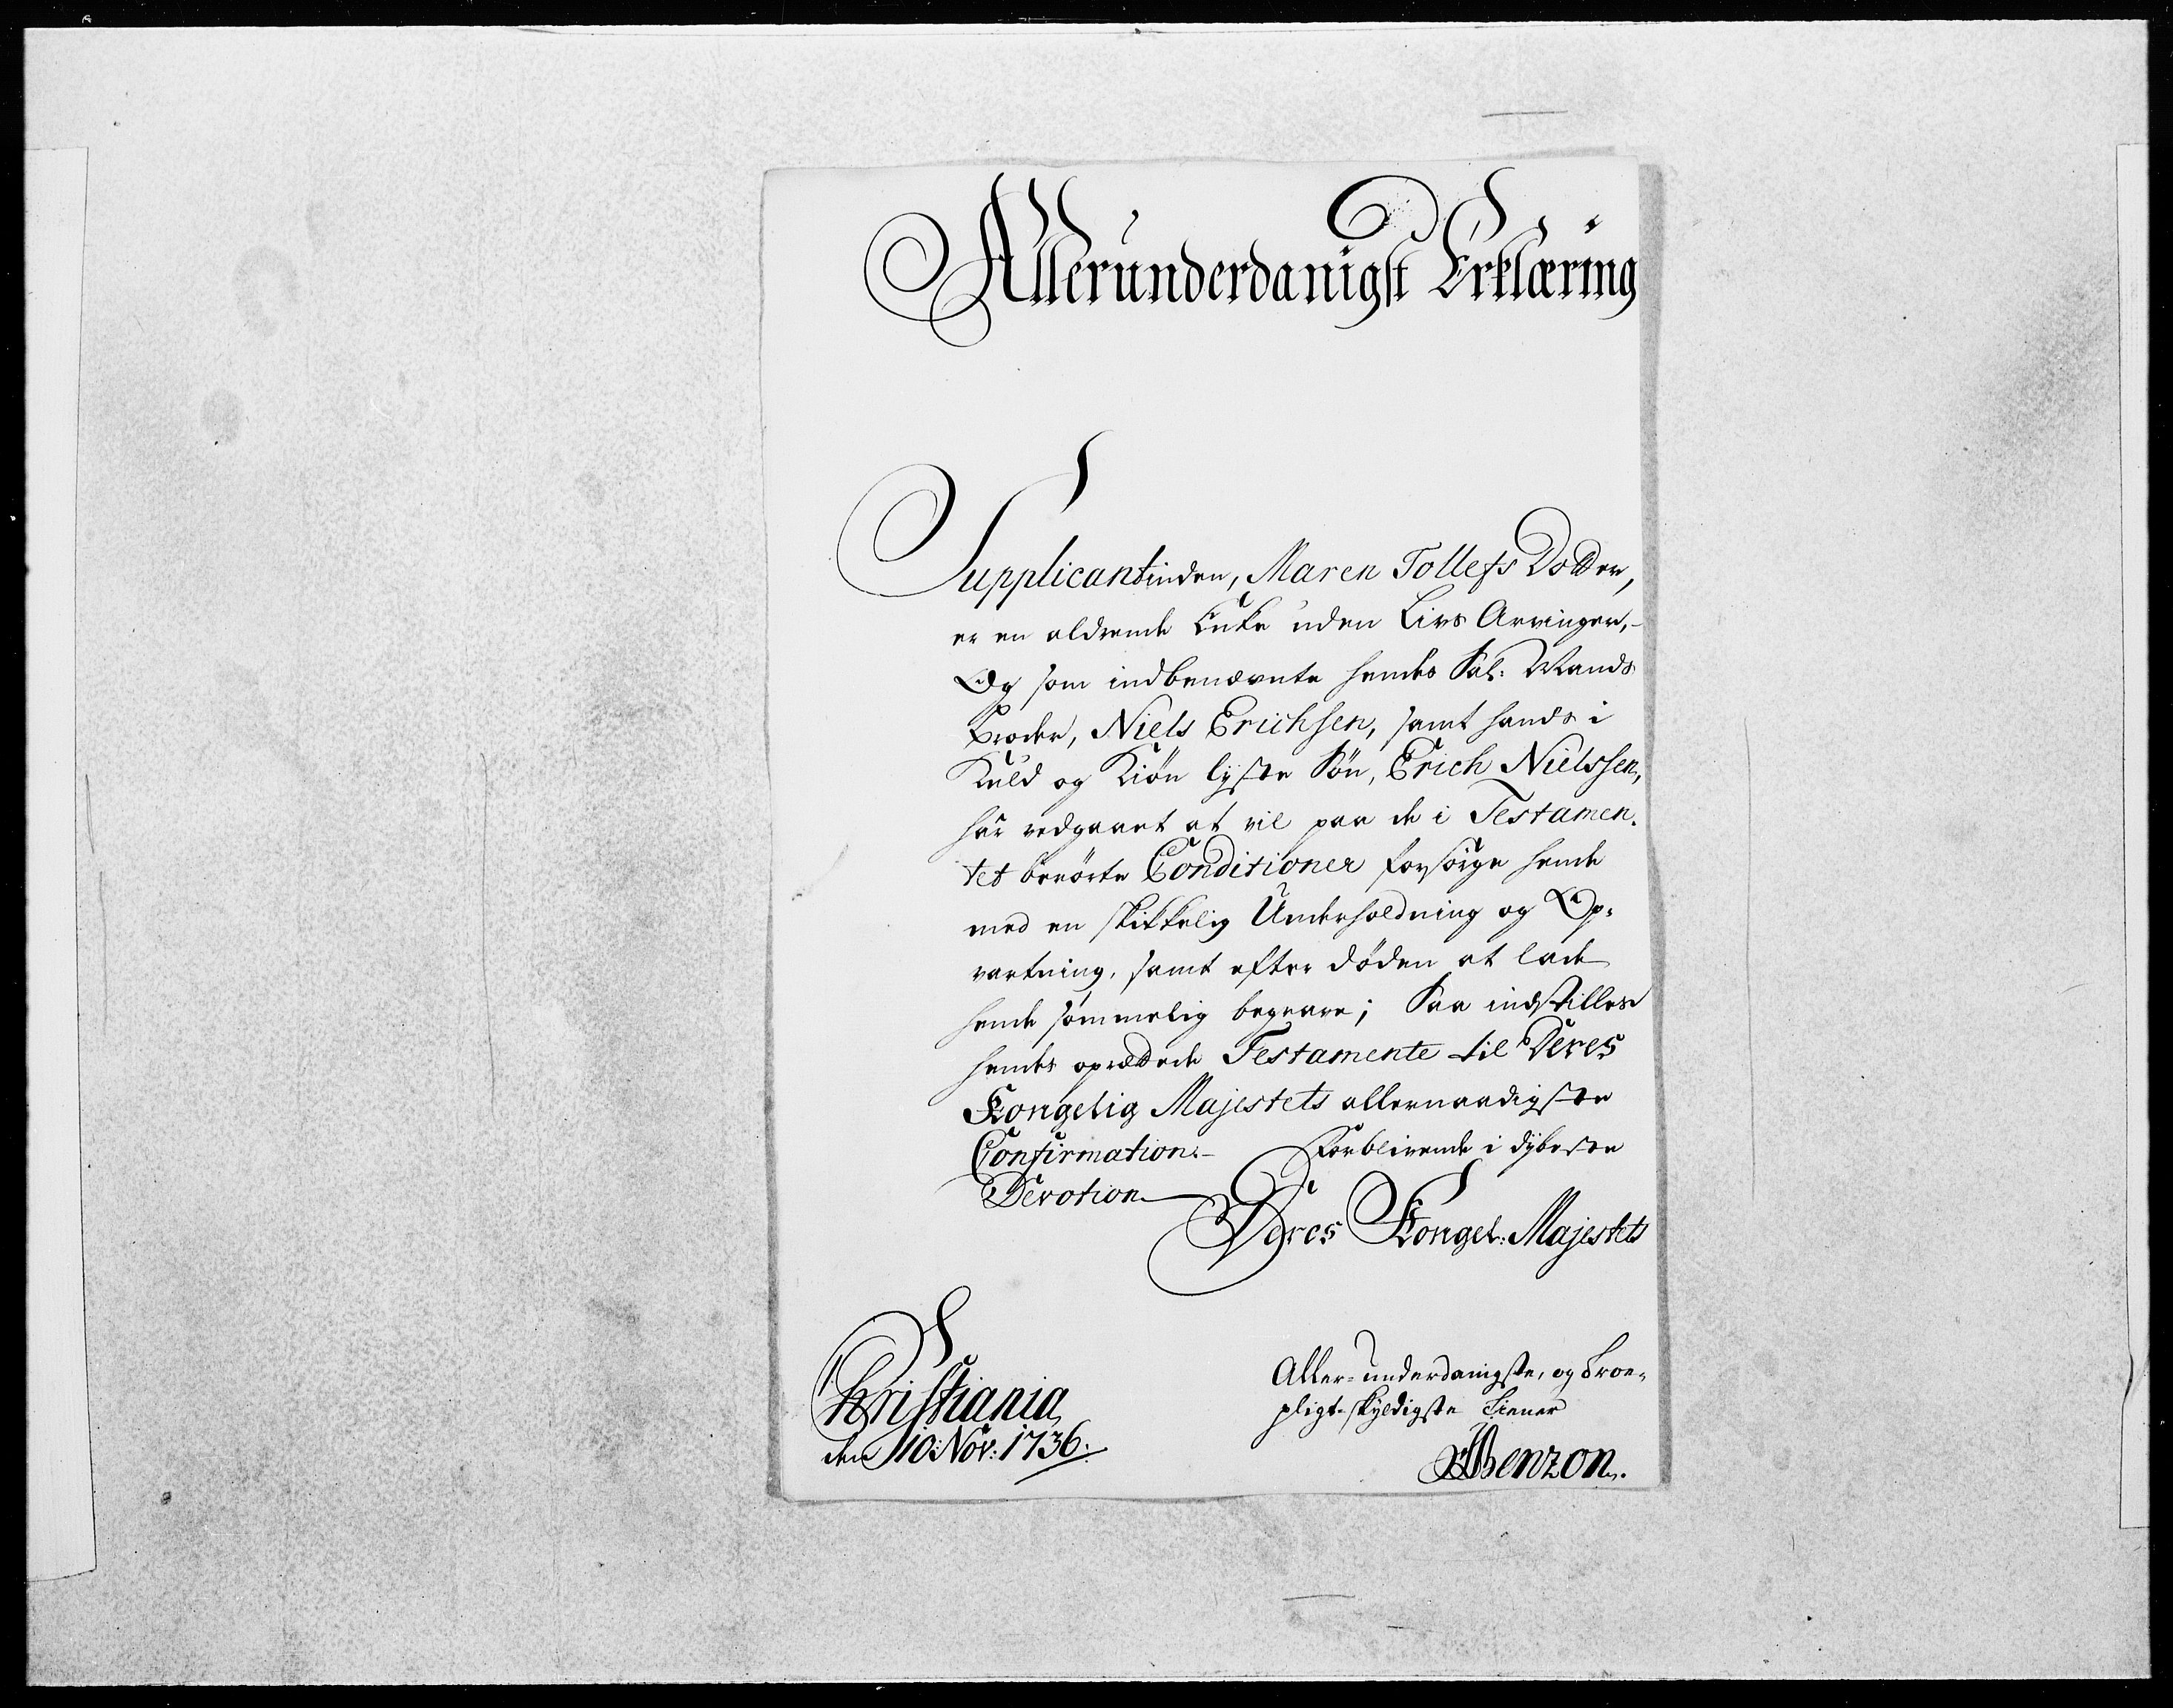 Allerunderdanigst Erklæring
Supplicantinden, Maren Tollefs Dotter,
er en aldrende Enke uden Livs Arvinger,-
Og som indbenævnte hendes Sal: Mands
Broder, Niels Erichsen, samt hands i
Kuld og Kiøn lyste Søn, Erich Nielssen,
har vedgaaet at vil paa de i Testamen-
tet berørte Conditioner forsørge hende
med en skikkelig Underholdning og Op-
vartning, samt efter døden at lade
hende sømmelig begrave; Saa indstilles
hendes oprættede Testamente til Deres
Kongelig Majestets allernaadigste
Confirmation.- Forblivende i dybeste
Devotion
Deres Kongel: Majestets
Christiania
den 10: Nov: 1736.
Aller-underdanigste, og troe-
pligt-skyldigste tiener
Benzon.